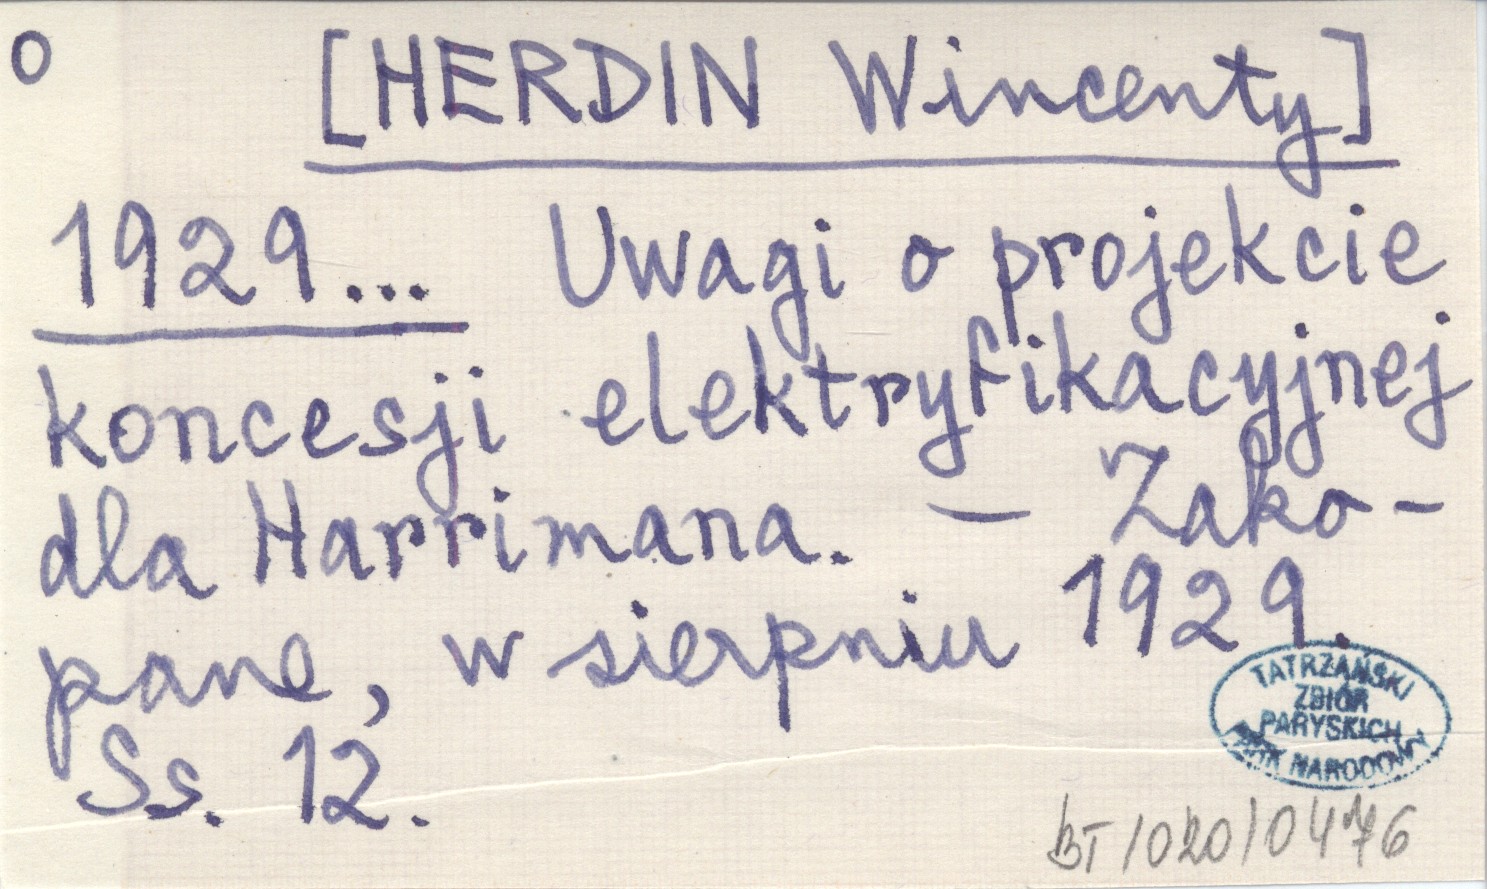 O
[HERDIN Wincenty]
1929... Uwagi o projekcie
koncesji elektryfikacyjnej
dla Harrimana. — Zako-
pane, w sierpniu 1929.
Ss. 12.
TATRZAŃSKI
ZBIÓR
PARYSKICH
PARK NARODOWY
BT/020/0476